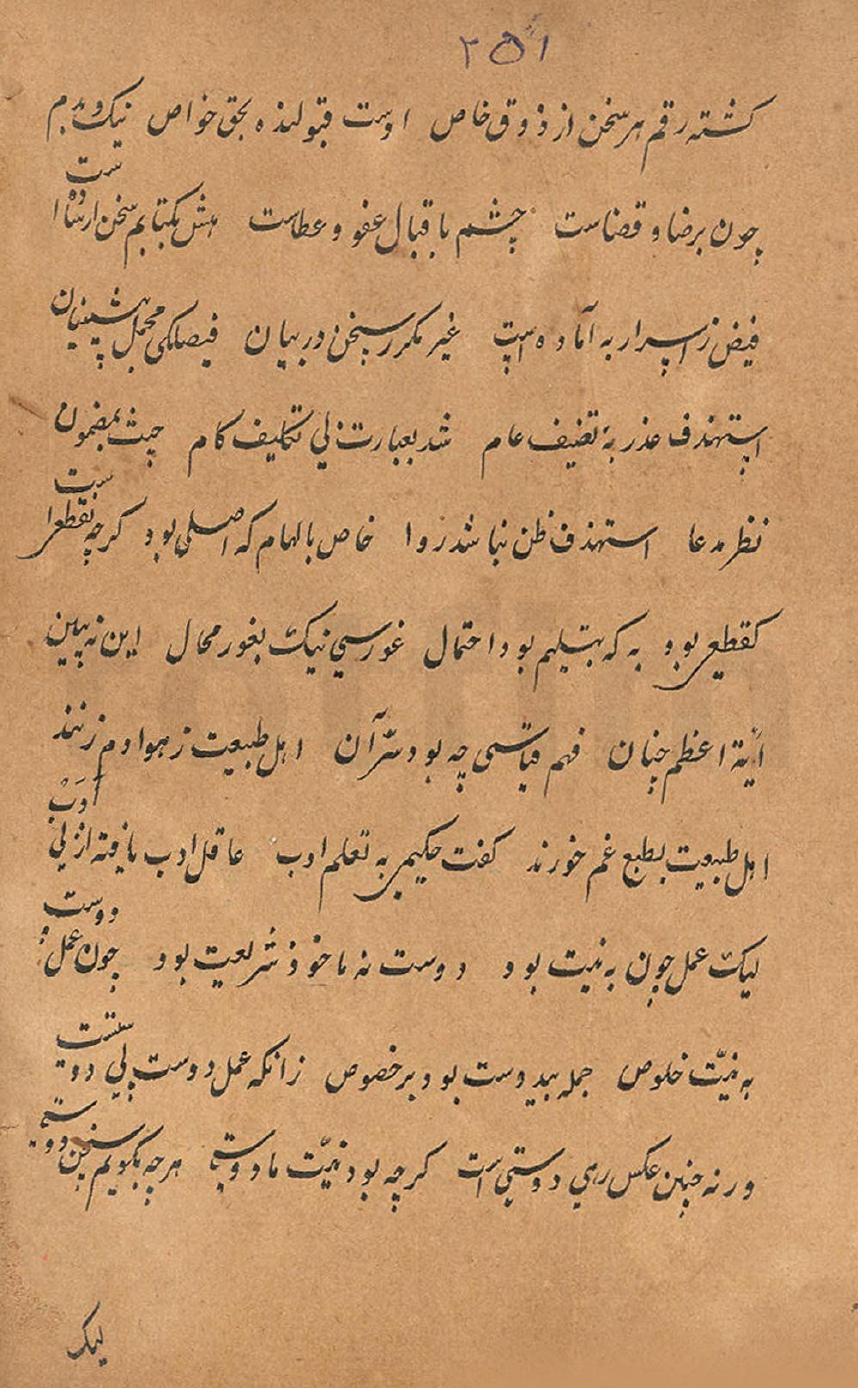 ۲۵۱
گشته رقم هر سخن از ذوق خاص اوست قبولنده بحق خواص نیک و بدم
ست
چون برضا و قضاست چشم باقبال عفو و عطاست سخن ارشاد
فیض ز اسرار به آماده است غیر مکرر سخن در بیان مجمل پیشینیان
استهدف عذر به تضیف عام شد بعبارت زلی تکلیف کام حیث بمضمون
ست
نظر مدعا استهدف ظن نباشد روا خاص بالهام که اصلی بود گرچه نقطعرا
کقطعی بود به که بتسلیم بود احتمال غوررسی نیک بغور محال این نه ببین
آیة اعظم چنان فهم قیاسی چه بود سر آن اهل طبیعت ز هوا دم زنند
ادب
اهل طبیعت بطبع غم خورند گفت حکیمی به تعلم ادب عاقل ادب یافته از لی
دوست
لیک عمل چون به نیت بود دوست نه ماخوذ شریعت بود چون عمل
به نیت خلوص جمله بدوست بود بر خصوص زانکه عمل دوست پلی دو
ورنه چنین عکس رهی دوستی است گرچه بود نیت ما دوستی هرچه بگویم سخن دوستی
لیک